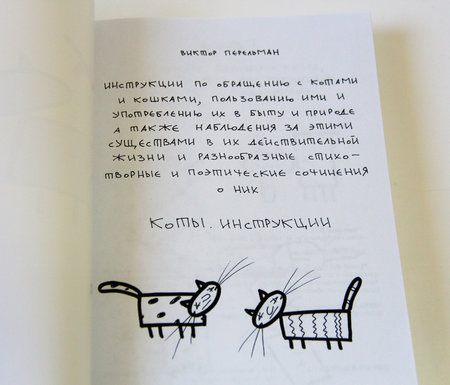 ВИКТОР ПЕРЕЛЬМАН
ИНСТРУКЦИИ ПО ОБРАЩЕНИЮ С КОТАМИ
И КОШКАМИ, ПОЛЬЗОВАНИЮ ИМИ И
УПОТРЕБЛЕНИЮ ИХ В БЫТУ И ПРИРОДЕ
А ТАКЖЕ НАБЛЮДЕНИЯ ЗА ЭТИМИ
СУЩЕСТВАМИ В ИХ ДЕЙСТВИТЕЛЬНОЙ
ЖИЗНИ И РАЗНООБРАЗНЫЕ СТИХО-
ТВОРНЫЕ И ПОЭТИЧЕСКИЕ СОЧИНЕНИЯ
О НИХ
КОТЫ. ИНСТРУКЦИИ